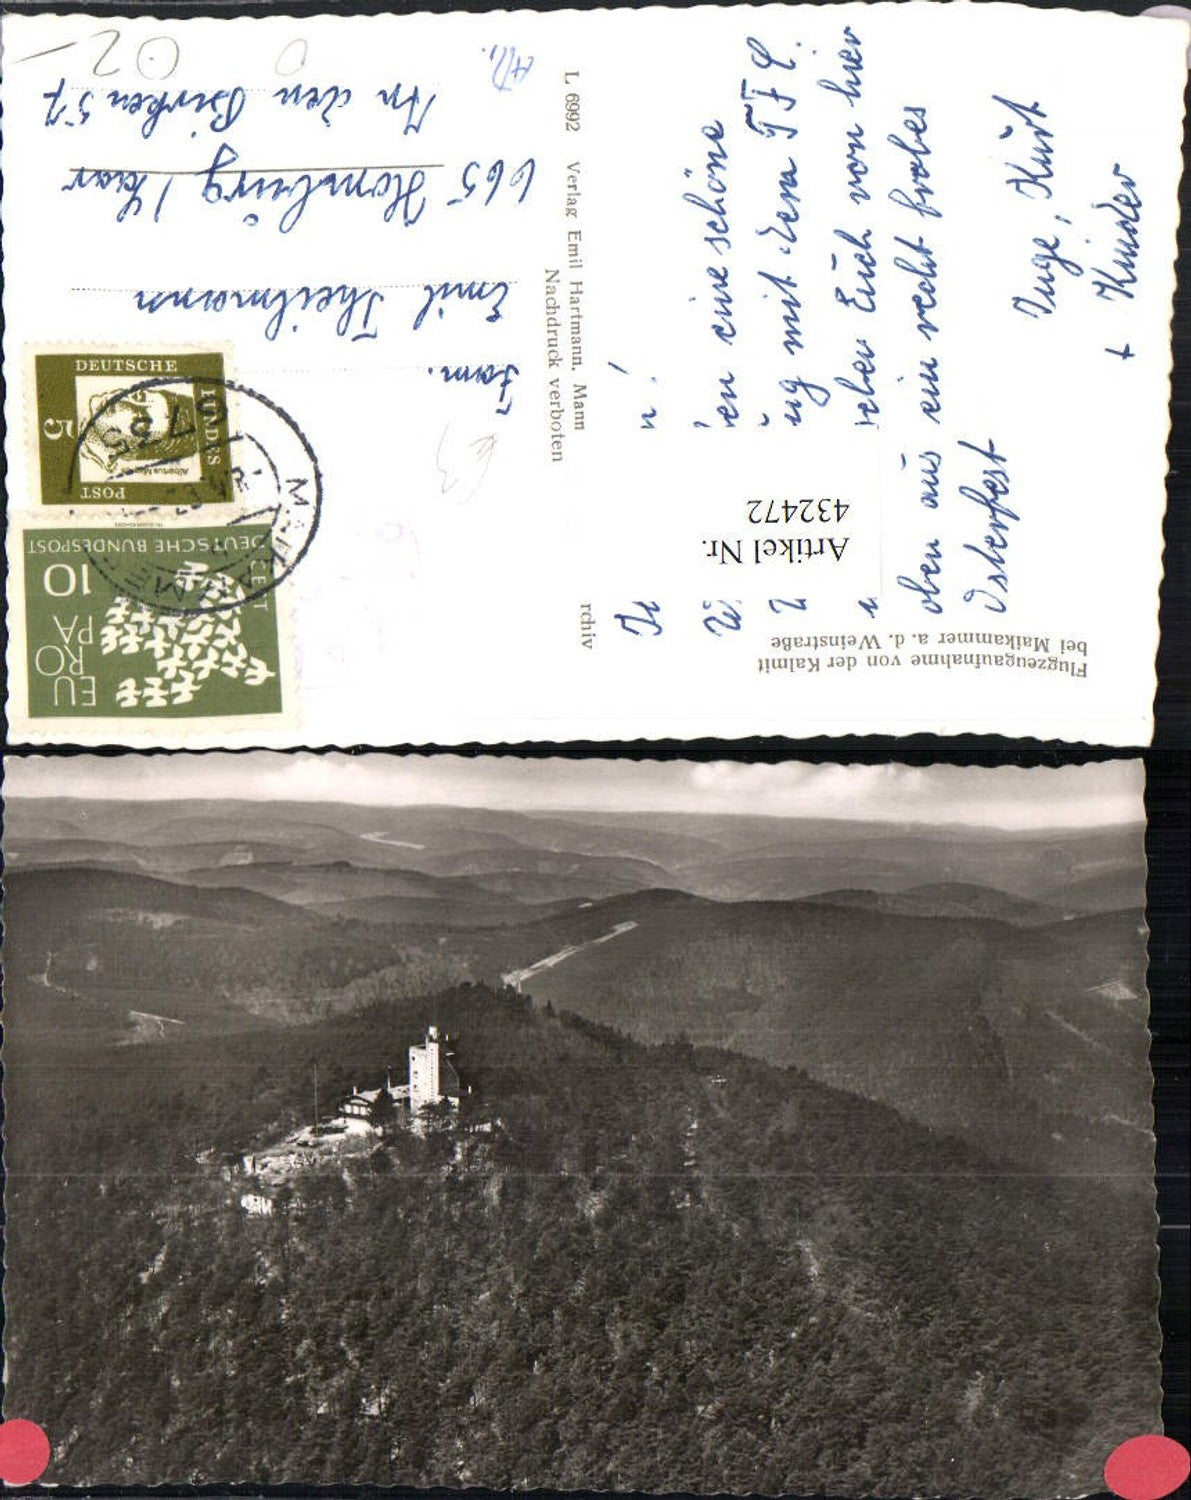 Flugzeugaufnahme von der Kalmit
bei Maikammer a. d. Weinstraße
Artikel Nr.
432472
en eine schöne
ug mit dem FFC.
Euch von hier
oben aus ein recht frohes
Osterfest
Inge, Kurt
+ Kinder
L 6992 Verlag Emil Hartmann, Mann
Nachdruck verboten
rchiv
EUROPA
CEPT
10
DEUTSCHE BUNDESPOST
DEUTSCHE
BUNDES
POST
5
MAIKAMMER
Fam.
Emil Theilmann
665 Homburg / Saar
In den Birken 57
02-